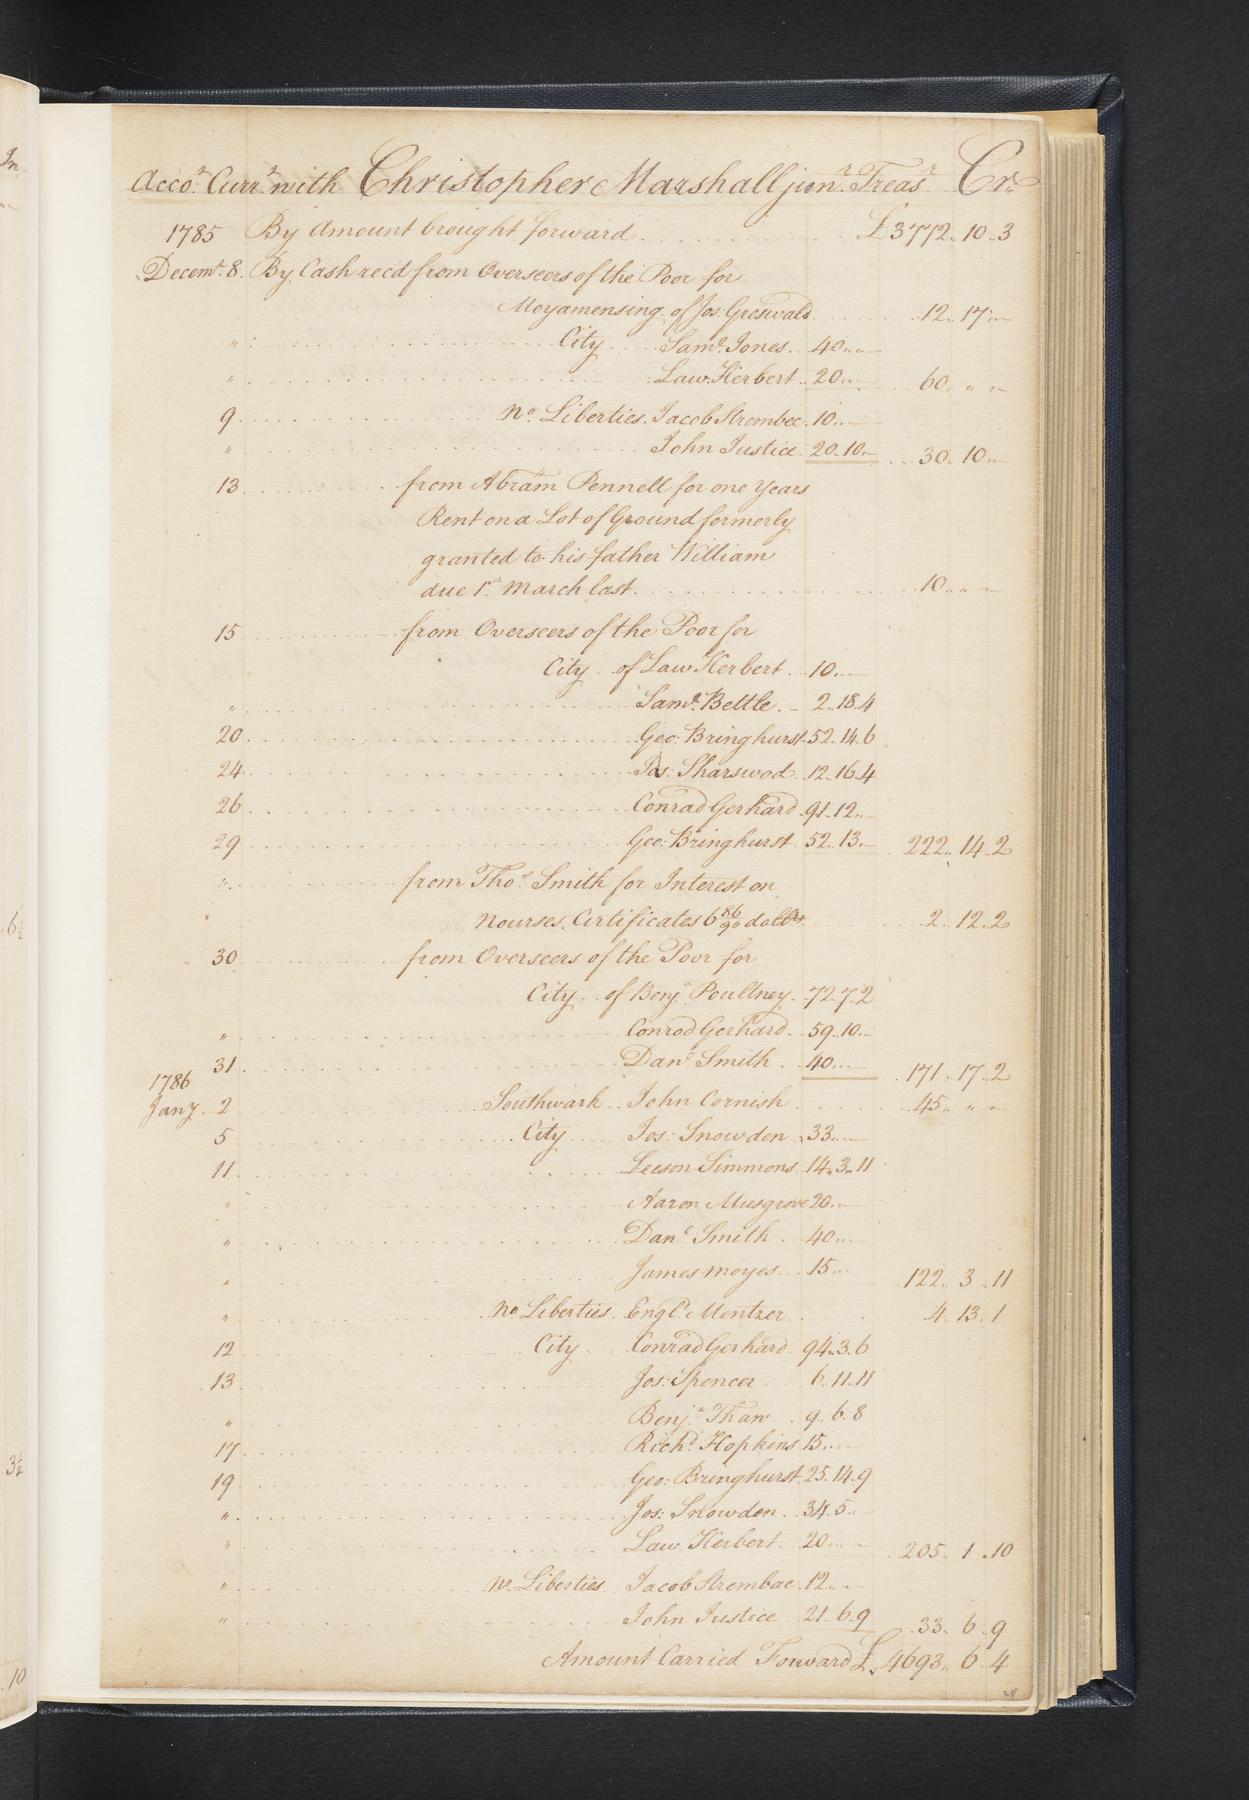 Acco.t Curr.t with Christopher Marshall jun.r Treas.r Cr.
1785 By Amount brought forward £3772..10..3
Decem.r 8. By Cash rec'd from Overseers of the Poor for
Moyamensing of Jos: Greswald 12..17..—
" City Sam.l Jones 40..—
" Law. Herbert 20..— 60.. " —
9 No. Liberties. Jacob Strembec 10..—
" John Justice 20.10.— 30..10..—
13 from Abram Pennell for one Years
Rent on a Lot of Ground formerly
granted to his father William
due 1.st March last 10..—
15 from Overseers of the Poor for
City of Law Herbert 10..—
" Sam.l Bettle 2..18..4
20 Geo: Bringhurst 52.14.6
24 Jas: Sharswod 12..16.4
26 Conrad Gerhard 91..12..—
29 Geo: Bringhurst 52..13.— 222..14..2
" from Tho.s Smith for Interest on
Nourses Certificates 6 86/90 dollrs. 2..12..2
30 from Overseers of the Poor for
City of Benj.n Poultney 72.7.2
" Conrod Gerhard 59..10.—
31 Dan.l Smith 40..— 171..17..2
1786
Jan.y 2 Southwark John Cornish 45.. " —
5 City Jos: Snowden 33..—
11 Leeson Simmons 14..3..11
" Aaron Musgrove 20..—
" Dan.l Smith 40..—
" James Moyes 15..— 122..3..11
" No. Liberties Engl.t Mentzer 4..13..1
12 City Conrad Gerhard 94..3.6
13 Jos: Spencer 6..11..11
" Benj.n Thaw 9..6..8
17 Rich.d Hopkins 15..—
19 Geo: Bringhurst 25.14.9
" Jos: Snowden 34..5..
" Law. Herbert 20..— 205..1..10
" No. Liberties Jacob Strembac 12..—
" John Justice 21..6..9 33..6..9
Amount Carried Forward £4693..6..4